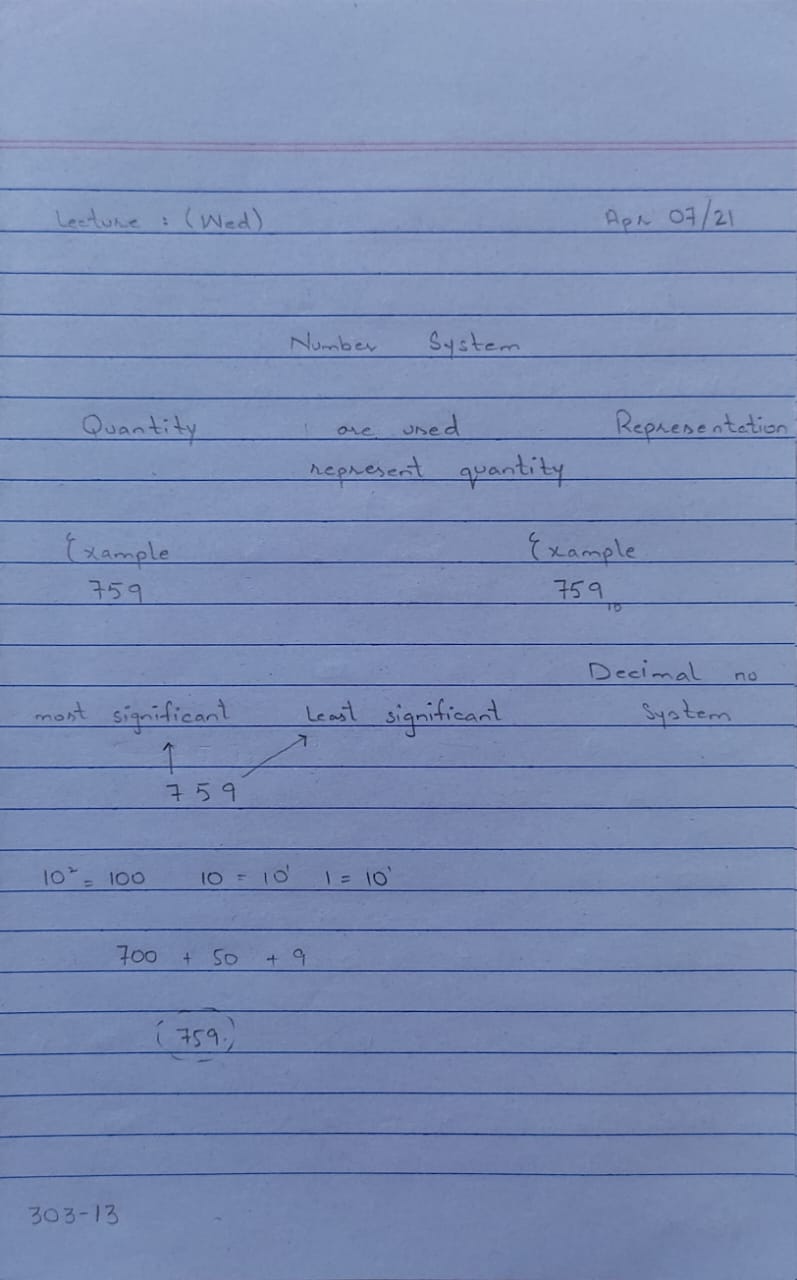 Lecture : (Wed) Apr 07/21
Number System
Quantity are used Representation
represent quantity
Example Example
759 759₁₀
Decimal no
most significant least significant System
↑ ↗
759
10² = 100 10 = 10¹ 1 = 10¹
700 + 50 + 9
(759)
303-13